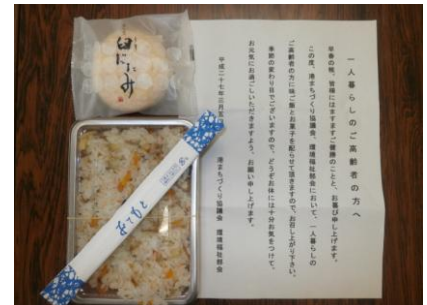 一人暮らしのご高齢者の方へ
早春の候、皆様にはますますご健勝のことと、お喜び申し上げます。
この度、湊まちづくり協議会、環境福祉部会において、一人暮らしの
ご高齢者の方に味ご飯とお菓子を配らせて頂きますので、お召し上がり下さい。
季節の変わり目でございますので、どうぞお体には十分お気をつけて、
お元気にお過ごしいただきますよう、お願い申し上げます。
平成二十七年三月
湊まちづくり協議会　環境福祉部会